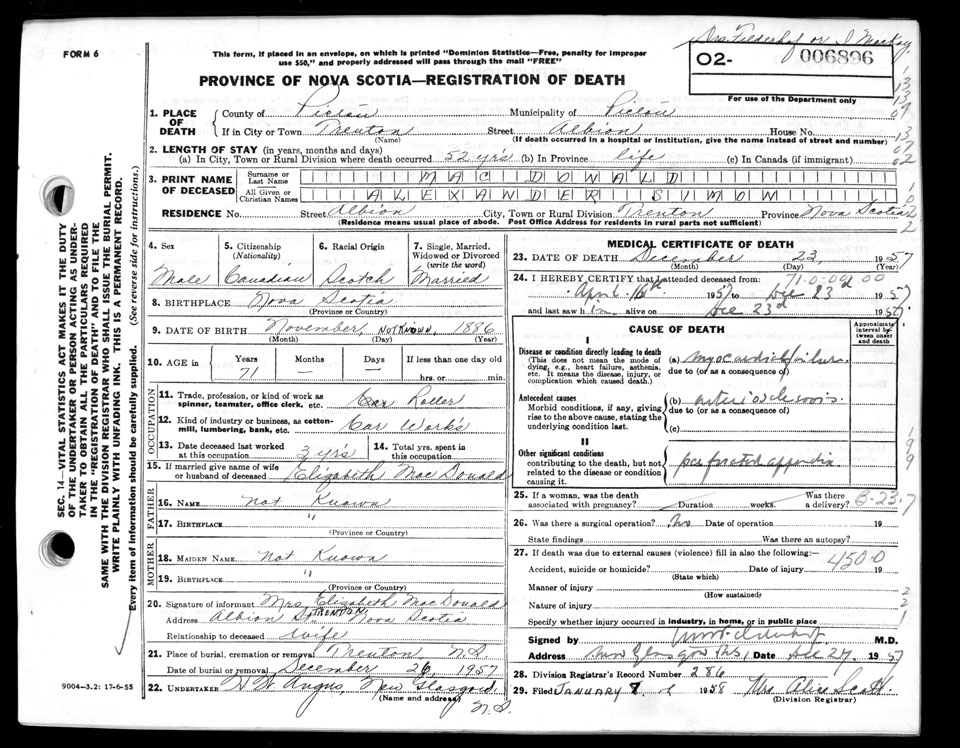 FORM 6
This form, if placed in an envelope, on which is printed "Dominion Statistics—Free, penalty for improper
use $50," and properly addressed will pass through the mail "FREE"
PROVINCE OF NOVA SCOTIA—REGISTRATION OF DEATH
Drs. Felderhof or J MacKay
02- 006896
For use of the Department only
1. PLACE OF DEATH County of Pictou Municipality of Pictou
If in City or Town Trenton Street Albion House No.
(Name) (If death occurred in a hospital or institution, give the name instead of street and number)
2. LENGTH OF STAY (in years, months and days)
(a) In City, Town or Rural Division where death occurred 52 yrs (b) In Province life (c) In Canada (if immigrant)
3. PRINT NAME OF DECEASED Surname or Last Name MAC DONALD
All Given or Christian Names ALEXANDER SIMON
RESIDENCE No. Street Albion City, Town or Rural Division Trenton Province Nova Scotia
(Residence means usual place of abode. Post Office Address for residents in rural parts not sufficient)
4. Sex 5. Citizenship (Nationality) 6. Racial Origin 7. Single, Married, Widowed or Divorced (write the word)
Male Canadian Scotch Married
8. BIRTHPLACE Nova Scotia
(Province or Country)
9. DATE OF BIRTH November, NOT KNOWN, 1886
(Month) (Day) (Year)
10. AGE in Years Months Days If less than one day old
71 — — hrs. or min.
OCCUPATION
11. Trade, profession, or kind of work as spinner, teamster, office clerk, etc. Car Roller
12. Kind of industry or business, as cotton-mill, lumbering, bank, etc. Car Works
13. Date deceased last worked at this occupation 3 yrs 14. Total yrs. spent in this occupation
15. If married give name of wife or husband of deceased Elizabeth MacDonald
FATHER
16. NAME Not Known
17. BIRTHPLACE "
(Province or Country)
MOTHER
18. MAIDEN NAME Not Known
19. BIRTHPLACE "
(Province or Country)
20. Signature of informant Mrs. Elizabeth MacDonald
Address Albion St. TRENTON Nova Scotia
Relationship to deceased wife
21. Place of burial, cremation or removal Trenton N.S.
Date of burial or removal December 26, 1957
22. UNDERTAKER H W Angus, New Glasgow, N.S.
(Name and address)
MEDICAL CERTIFICATE OF DEATH
23. DATE OF DEATH December 23, 1957
(Month) (Day) (Year)
24. I HEREBY CERTIFY that I attended deceased from:
April 16th 1957 to Dec 23 1957
and last saw him alive on Dec 23d 1957
CAUSE OF DEATH
Approximate interval between onset and death
I
Disease or condition directly leading to death (a) myocardial failure
(This does not mean the mode of dying, e.g., heart failure, asthenia, etc. It means the disease, injury, or complication which caused death.) due to (or as a consequence of)
Antecedent causes (b) arteriosclerosis
Morbid conditions, if any, giving rise to the above cause, stating the underlying condition last. due to (or as a consequence of)
(c)
II
Other significant conditions perforated appendix
contributing to the death, but not related to the disease or condition causing it.
25. If a woman, was the death associated with pregnancy? Duration weeks. Was there a delivery? B-23-7
26. Was there a surgical operation? No Date of operation 19
State findings Was there an autopsy?
27. If death was due to external causes (violence) fill in also the following: 450-0
Accident, suicide or homicide? Date of injury 19
(State which)
Manner of injury
(How sustained)
Nature of injury
Specify whether injury occurred in industry, in home, or in public place
Signed by M.D.
Address New Glasgow NS, Date Dec 27, 1957
28. Division Registrar's Record Number 286
29. Filed JANUARY 7 1958 Mrs Alice Scott
(Division Registrar)
SEC. 14—VITAL STATISTICS ACT MAKES IT THE DUTY
OF THE UNDERTAKER OR PERSON ACTING AS UNDER-
TAKER TO OBTAIN ALL THE PARTICULARS REQUIRED
IN THE "REGISTRATION OF DEATH" AND TO FILE THE
SAME WITH THE DIVISION REGISTRAR WHO SHALL ISSUE THE BURIAL PERMIT.
WRITE PLAINLY WITH UNFADING INK. THIS IS A PERMANENT RECORD.
Every item of information should be carefully supplied. (See reverse side for instructions.)
9004—3.2: 17-6-55